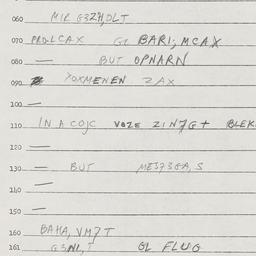 060 MIR G3ZH,OLT
070 PROLCAX GL BARI; MCAX
080 — BUT OPNARN
090 YOXMENEN ZAX
100 —
110 IN A COJC VOZE ZIN7G+ BLEK
120 —
130 — BUT ME3736A, S
140 —
150 —
160 BAHA, VM7T
161 G3NI, T GL FLUG